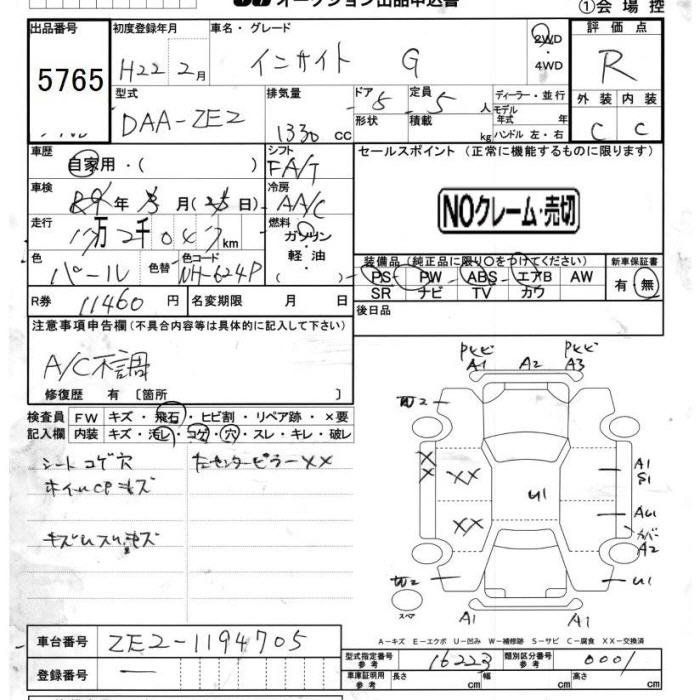 オークション出品申込書
①会場控
出品番号
5765
初度登録年月
H22 2月
車名・グレード
インサイト G
2WD
・4WD
評価点
R
型式
DAA-ZE2
排気量
1330cc
ドア 5
形状
定員 5人
積載 kg
ディーラー・並行
モデル年式 年式
ハンドル 左・右
外装 内装
C C
車歴
自家用・( )
シフト
FA/T
セールスポイント (正常に機能するものに限ります)
車検
年 月( 日)
冷房
AA/C
NOクレーム・売切
走行
万2千047km
燃料
ガソリン
・
軽・油
色
パール
色替
色コード
NH-624P
装備品(純正品に限り○をつけてください)
PS PW ABS エアB AW
SR ナビ TV カワ
新車保証書
有・無
R券 11460円
名変期限 月 日
後日品
注意事項申告欄(不具合内容等は具体的に記入して下さい)
A/C不調
修復歴 有 [箇所 ]
検査員記入欄
FW キズ・飛石・ヒビ割・リペア跡・×要
内装 キズ・汚レ・コゲ・穴・スレ・キレ・破レ
シートコゲ穴
左センターピラーXX
A1 A2 A3
2
XX
XX
U1
A1
S1
AU1
カバー
A2
2
U1
スペア
A1 A1
A-キズ E-エクボ U-凹み W-補修跡 S-サビ C-腐食 XX-交換済
車台番号
ZE2-1194705
登録番号
—
型式指定番号
参考
16223
類別区分番号
参考
0001
車庫証明用
参考
長さ cm
幅 cm
高さ cm